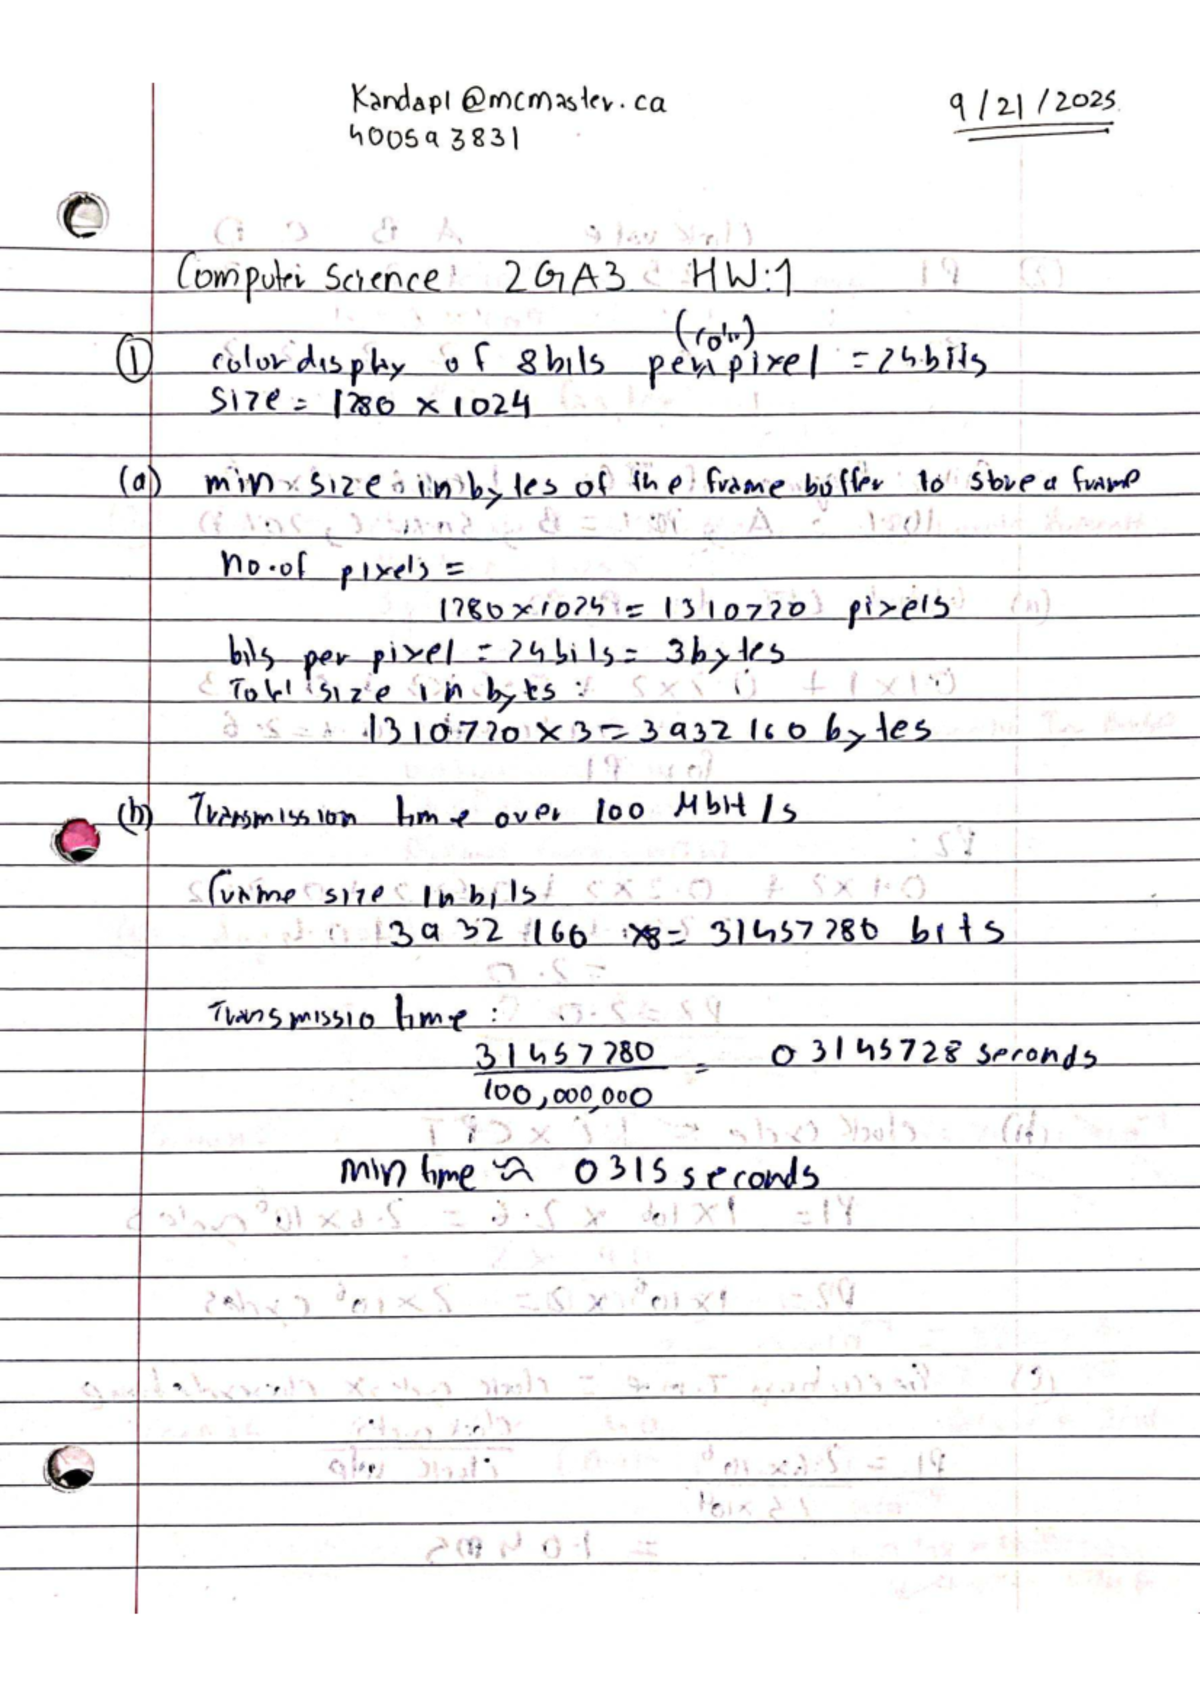 Kandapl@mcmaster.ca
400593831
9/21/2025
Computer Science 2GA3 HW:1
(color)
① color display of 8bits per pixel = 24bits
Size = 1280 x 1024
(a) min size in bytes of the frame buffer to store a frame
no.of pixels =
1280x1024 = 1310720 pixels
bits per pixel = 24bits = 3bytes
Total size in byts:
1310720 x 3 = 3932160 bytes
(b) Transmission time over 100 Mbit/s
frame size in bits
3932160 x8 = 31457280 bits
Transmissio time:
31457280 = 0 3145728 seconds
100,000,000
min time ≈ 0315 seconds